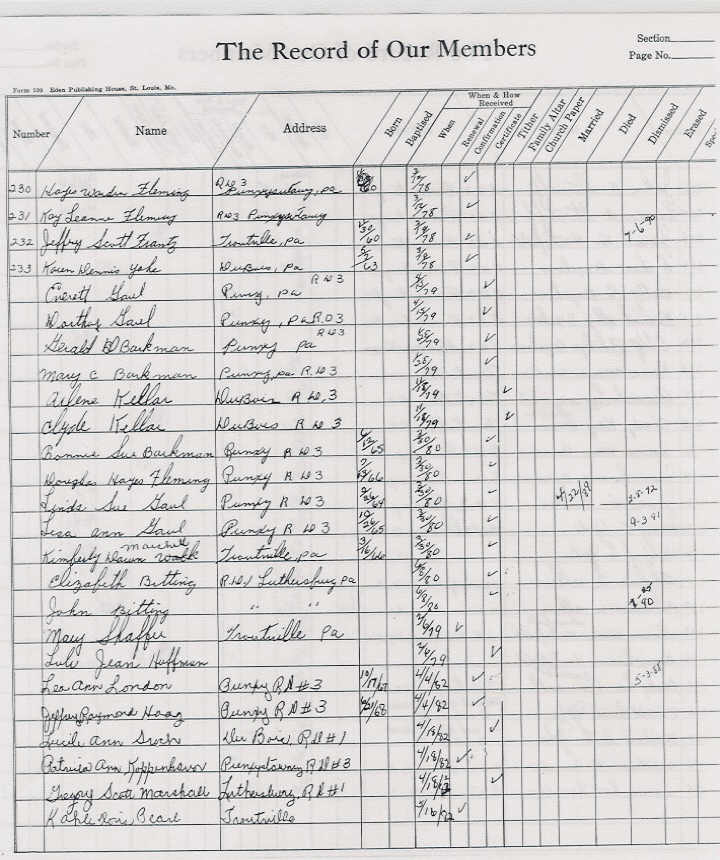 The Record of Our Members
Section
Page No.
Form 109 Eden Publishing House, St. Louis, Mo.
When & How Received
Number Name Address Born Baptised When Renewal Confirmation Certificate Tither Family Altar Church Paper Married Died Dismissed Erased
230 Hayes Fleming R D 3 Punxsutawney, pa 60 /78
231 Kay Leanne Fleming R D 3 Punxsutawney /78
232 Jeffry Scott Frantz Troutville, pa /60 /78 7-6-90
233 Karen Dennis Yohe DuBois, Pa /63 /78
Everett Gaul Punxy, Pa R D 3 /79
Dorothy Gaul Punxy, Pa R.D 3 /79
Gerald D Barkman Punxy Pa R D 3 /79
Mary C Barkman Punxy, pa R D 3 /79
Arlene Kellar DuBois R D, 3 /79
Clyde Kellar DuBois R D 3 /79
Bonnie Sue Barkman Punxy R D 3 /65 /80
Douglas Hayes Fleming Punxy R D 3 /66 /80
Linda Sue Gaul Punxy R D 3 /64 /80
Lisa Ann Gaul Punxy R D 3 /65 /80 9-3-91
Kimberly Dawn Marshall Troutville, pa 3/16/66 /80
Elizabeth Bitting R.D.1 Luthersburg pa 6/8/80
John Bitting " " 6/8/80
Mary Shaffer Troutville Pa /79
Lulu Jean Hoffman /79
Lea Ann London Punxy R D #3 10/17/67 4/4/82 5-3-88
Jeffrey Raymond Haag Punxy R D #3 /68 4/4/82
Lucile Ann Du Bois, R D #1 4/18/82
Patricia Ann Koppenhaver Punxstawney R D #3 4/18/82
Gregory Scott Marshall Luthersburg, R D #1 4/18/82
Kahle Lois Pearl Troutville 5/16/82